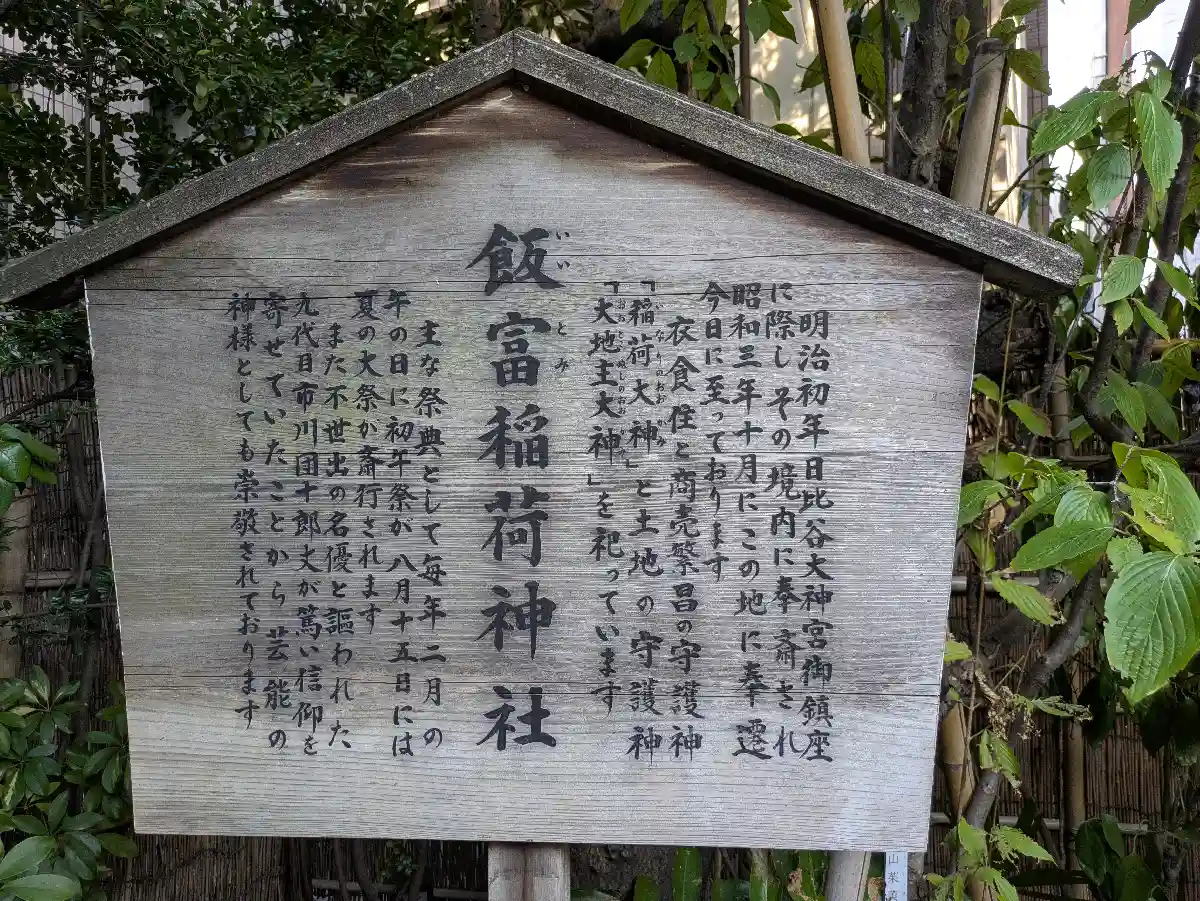 明治初年日比谷大神宮御鎮座
に際し その境内に奉斎され
昭和三年十月にこの地に奉遷
今日に至っております
衣食住と商売繁昌の守護神
「稲荷大神」と土地の守護神
「大地主大神」を祀っています
飯富稲荷神社
いいとみ
主な祭典として毎年二月の
午の日に初午祭が 八月十五日には
夏の大祭か斎行されます
また不世出の名優と謳われた
九代目市川団十郎丈が篤い信仰を
寄せていたことから 芸能の
神様としても崇敬されております